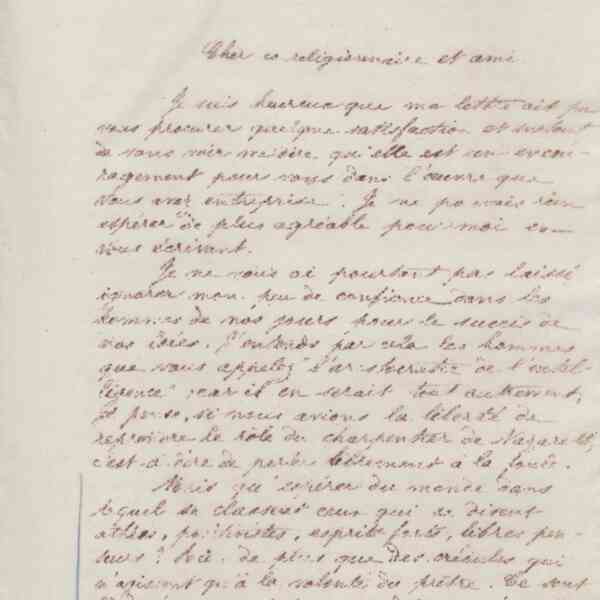 Cher co religionnaire et ami
Je suis heureux que ma lettre ait pu
vous procurer quelque satisfaction et surtout
de vous voir me dire qu'elle est un encou-
ragement pour vous dans l'œuvre que
vous avez entreprise. Je ne pouvais rien
espérer de plus agréable pour moi en
vous écrivant.
Je ne vous ai pourtant pas laissé
ignorer mon peu de confiance dans les
hommes de nos jours pour le succès de
nos idées. J'entends par cela les hommes
que vous appelez "l'aristocratie de l'intel-
ligence"; car il en serait tout autrement,
je pense, si nous avions la liberté de
reprendre le rôle du charpentier de Nazareth,
c'est-à-dire de parler librement à la foule.
Mais qu'espérer du monde dans
lequel se classent ceux qui se disent
athées, positivistes, esprits forts, libres pen-
seurs? de plus que des crédules qui
n'agissent qu'à la volonté du prêtre. Ce sont